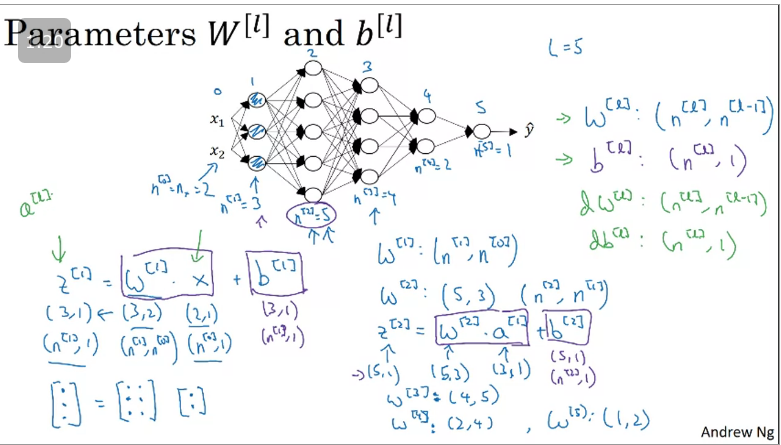 Parameters W^[l] and b^[l]
1:20
L = 5
0 1 2 3 4 5
x₁
x₂
ŷ
n^[0] = nₓ = 2
n^[1] = 3
n^[2] = 5
n^[3] = 4
n^[4] = 2
n^[5] = 1
→ w^[l] : (n^[l], n^[l-1])
→ b^[l] : (n^[l], 1)
dw^[l] : (n^[l], n^[l-1])
db^[l] : (n^[l], 1)
a^[l]
z^[1] = w^[1] · x + b^[1]
(3,1) ← (3,2) (2,1) (3,1)
(n^[1], 1) (n^[1], n^[0]) (n^[0], 1) (n^[1], 1)
[⋮] = [⋮ ⋮] [:]
w^[1] : (n^[1], n^[0])
w^[2] : (5,3) (n^[2], n^[1])
z^[2] = w^[2] · a^[1] + b^[2]
→ (5,1) (5,3) (3,1) (5,1)
(n^[2], 1)
w^[3] : (4,5)
w^[4] : (2,4) , w^[5] : (1,2)
Andrew Ng